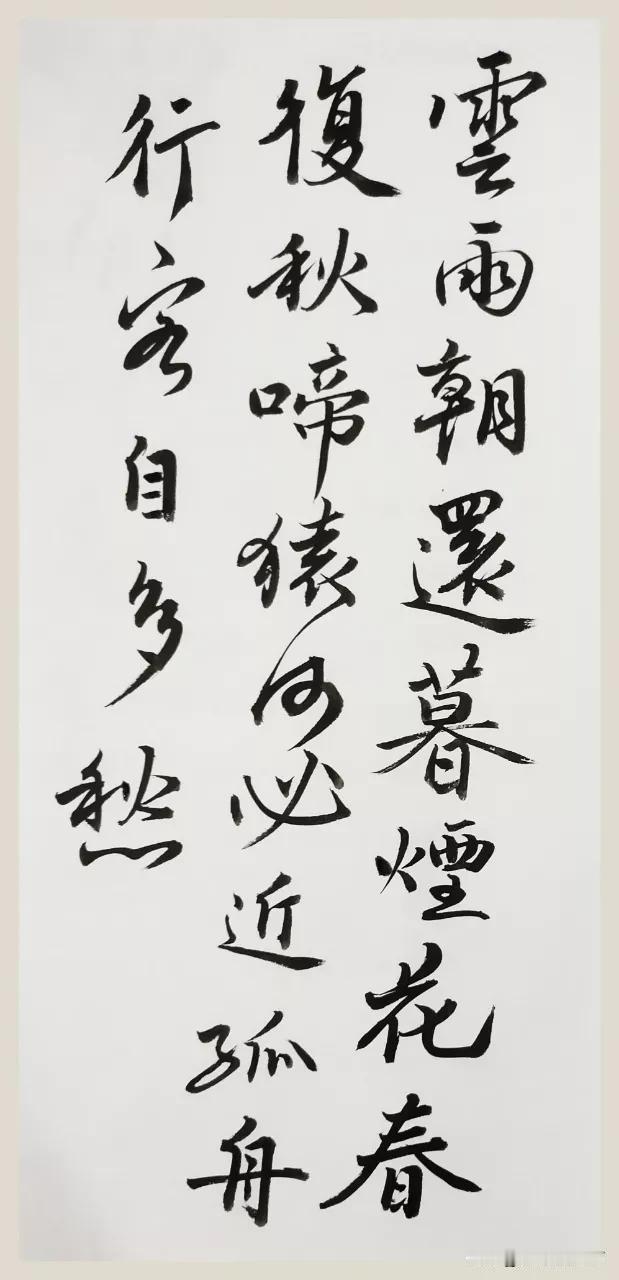 雲雨朝還暮煙花春
復秋啼猿何必近孤舟
行客自多愁